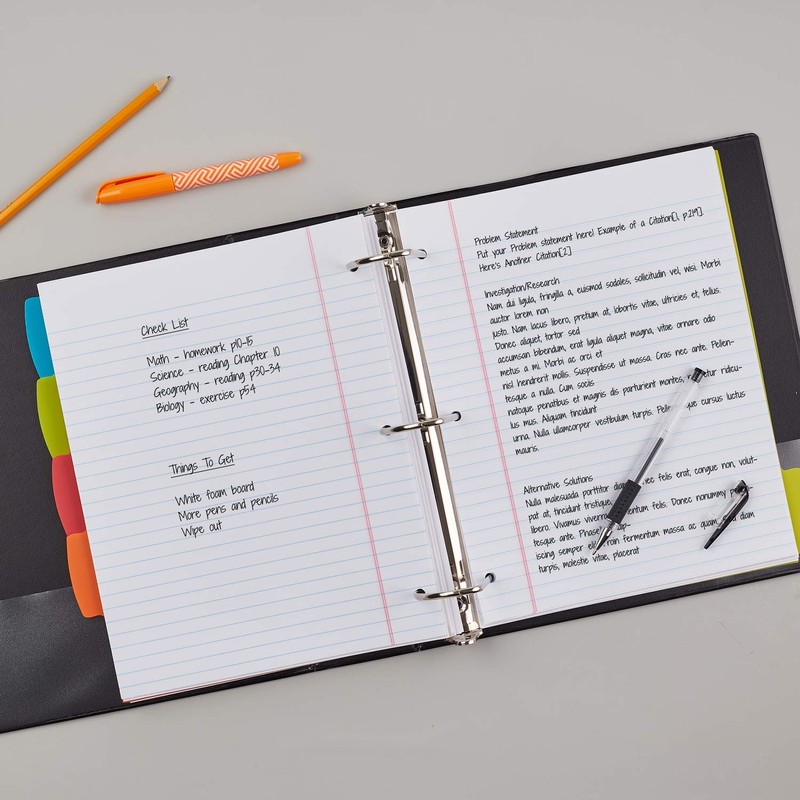 Check List
Math - homework p10-15
Science - reading Chapter 10
Geography - reading p30-34
Biology - exercise p54
Things To Get
White foam board
More pens and pencils
Wipe out
Problem Statement
Put your Problem statement here! Example of a Citation[1, p.219].
Here's Another Citation[2]
Investigation/Research
Nam dui ligula, fringilla a, euismod sodales, sollicitudin vel, wisi. Morbi
auctor lorem non
justo. Nam lacus libero, pretium at, lobortis vitae, ultricies et, tellus.
Donec aliquet, tortor sed
accumsan bibendum, erat ligula aliquet magna, vitae ornare odio
metus a mi. Morbi ac orci et
nisl hendrerit mollis. Suspendisse ut massa. Cras nec ante. Pellen-
tesque a nulla. Cum sociis
natoque penatibus et magnis dis parturient montes, tur ridicu-
lus mus. Aliquam tincidunt
urna. Nulla ullamcorper vestibulum turpis. Pellen que cursus luctus
mauris.
Alternative Solutions
Nulla malesuada porttitor diam. ec felis erat, congue non, volut-
pat at, tincidunt tristique, libero. Vivamus viverra fermentum felis. Donec nonummy pellen-